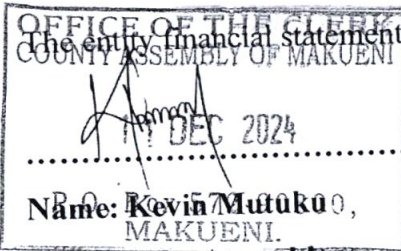 OFFICE OF THE CLERK
The entity financial statement
COUNTY ASSEMBLY OF MAKUENI
11 DEC 2024
Name: Kevin Mutuku
P.O. Box 57
MAKUENI.